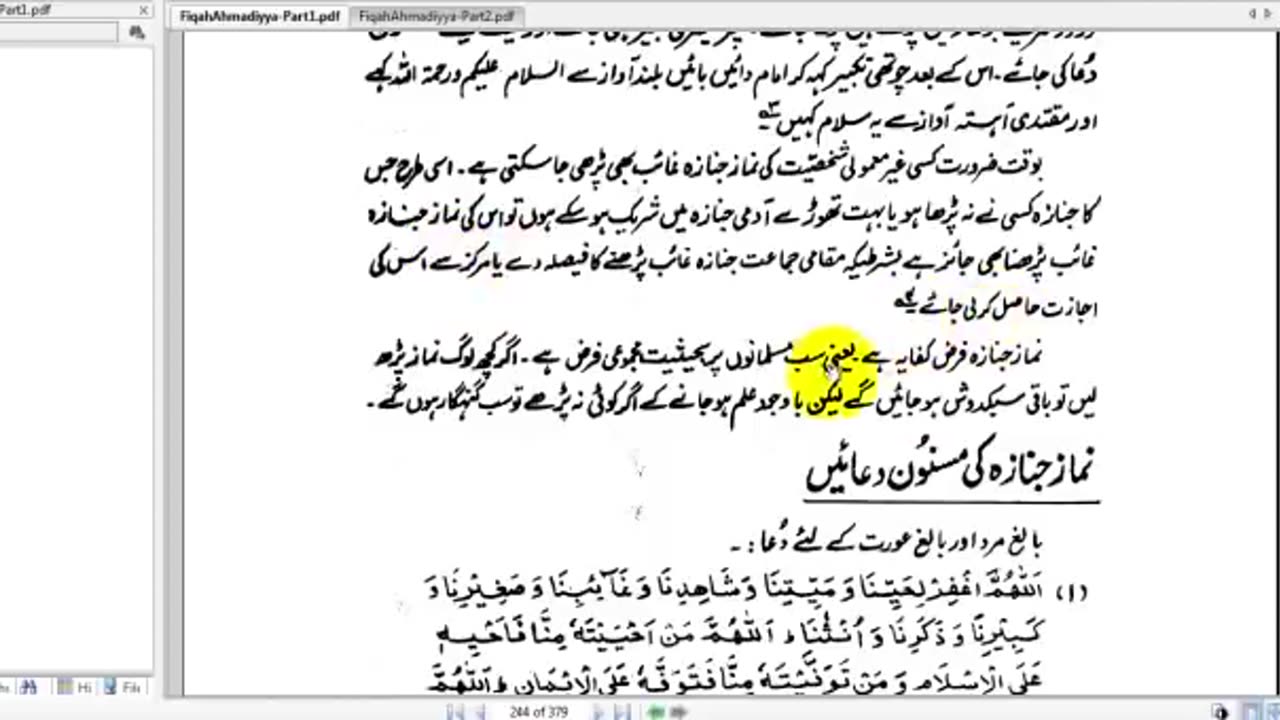 Part1.pdf
FiqahAhmadiyya-Part1.pdf FiqahAhmadiyya-Part2.pdf
دُعا کی جائے۔ اس کے بعد چوتھی تکبیر کہہ کر امام دائیں بائیں بلند آواز سے السلام علیکم ورحمۃ اللہ کہے
اور مقتدی آہستہ آواز سے یہ سلام کہیں ۳؎
بوقت ضرورت کسی غیر معمولی شخصیّت کی نماز جنازہ غائب بھی پڑھی جا سکتی ہے۔ اسی طرح جس
کا جنازہ کسی نے نہ پڑھا ہو یا بہت تھوڑے آدمی جنازہ میں شریک ہو سکے ہوں تو اس کی نماز جنازہ
غائب پڑھنا بھی جائز ہے بشرطیکہ مقامی جماعت جنازہ غائب پڑھنے کا فیصلہ دے یا مرکز سے اس کی
اجازت حاصل کر لی جائے ۴؎
نماز جنازہ فرض کفایہ ہے یعنی سب مسلمانوں پر بحیثیت مجموعی فرض ہے۔ اگر کچھ لوگ نماز پڑھ
لیں تو باقی سبکدوش ہو جائیں گے لیکن باوجود علم ہو جانے کے اگر کوئی نہ پڑھے تو سب گنہگار ہوں گے۔
نماز جنازہ کی مسنُون دعائیں
بالغ مرد اور بالغ عورت کے لئے دُعا :۔
(۱) اَللّٰهُمَّ اغْفِرْ لِحَيِّنَا وَ مَيِّتِنَا وَ شَاهِدِنَا وَ غَآئِبِنَا وَ صَغِيْرِنَا وَ
كَبِيْرِنَا وَ ذَكَرِنَا وَ اُنْثٰنَا ۔ اَللّٰهُمَّ مَنْ اَحْيَيْتَهٗ مِنَّا فَاَحْيِهٖ
عَلَى الْاِسْلَامِ وَ مَنْ تَوَفَّيْتَهٗ مِنَّا فَتَوَفَّهٗ عَلَى الْاِيْمَانِ ۔ اَللّٰهُمَّ
Hi
244 of 379